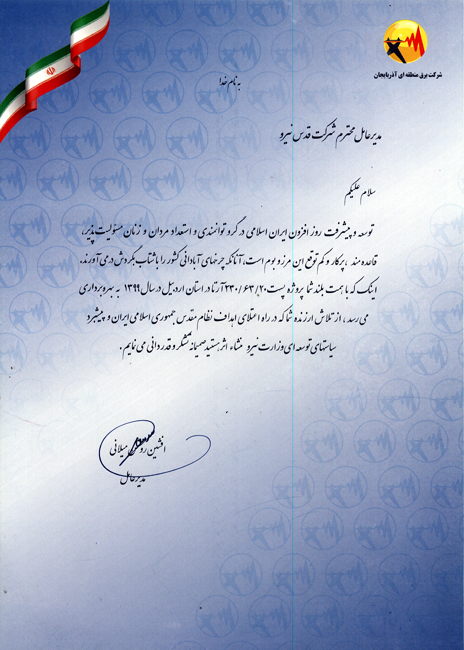 شرکت برق منطقه ای آذربایجان
به نام خدا
مدیرعامل محترم شرکت قدس نیرو
سلام علیکم
توسعه و پیشرفت روز افزون ایران اسلامی در گرو توانمندی و استعداد مردان و زنان مسئولیت پذیر،
قاعده مند ، پرکار و کم توقع این مرز و بوم است، آنانکه چرخهای آبادانی کشور را باشتاب بگردش درمی آورند.
اینک که با همت بلند شما پروژه پست ۲۳۰/۶۳/۲۰ آرتا در استان اردبیل در سال ۱۳۹۹ به بهره برداری
می رسد ، از تلاش ارزنده شما که در راه اعتلای اهداف نظام مقدس جمهوری اسلامی ایران و پیشبرد
سیاستهای توسعه ای وزارت نیرو منشاء اثر هستید صمیمانه تشکر و قدردانی می نمایم .
افشین میلانی
مدیرعامل